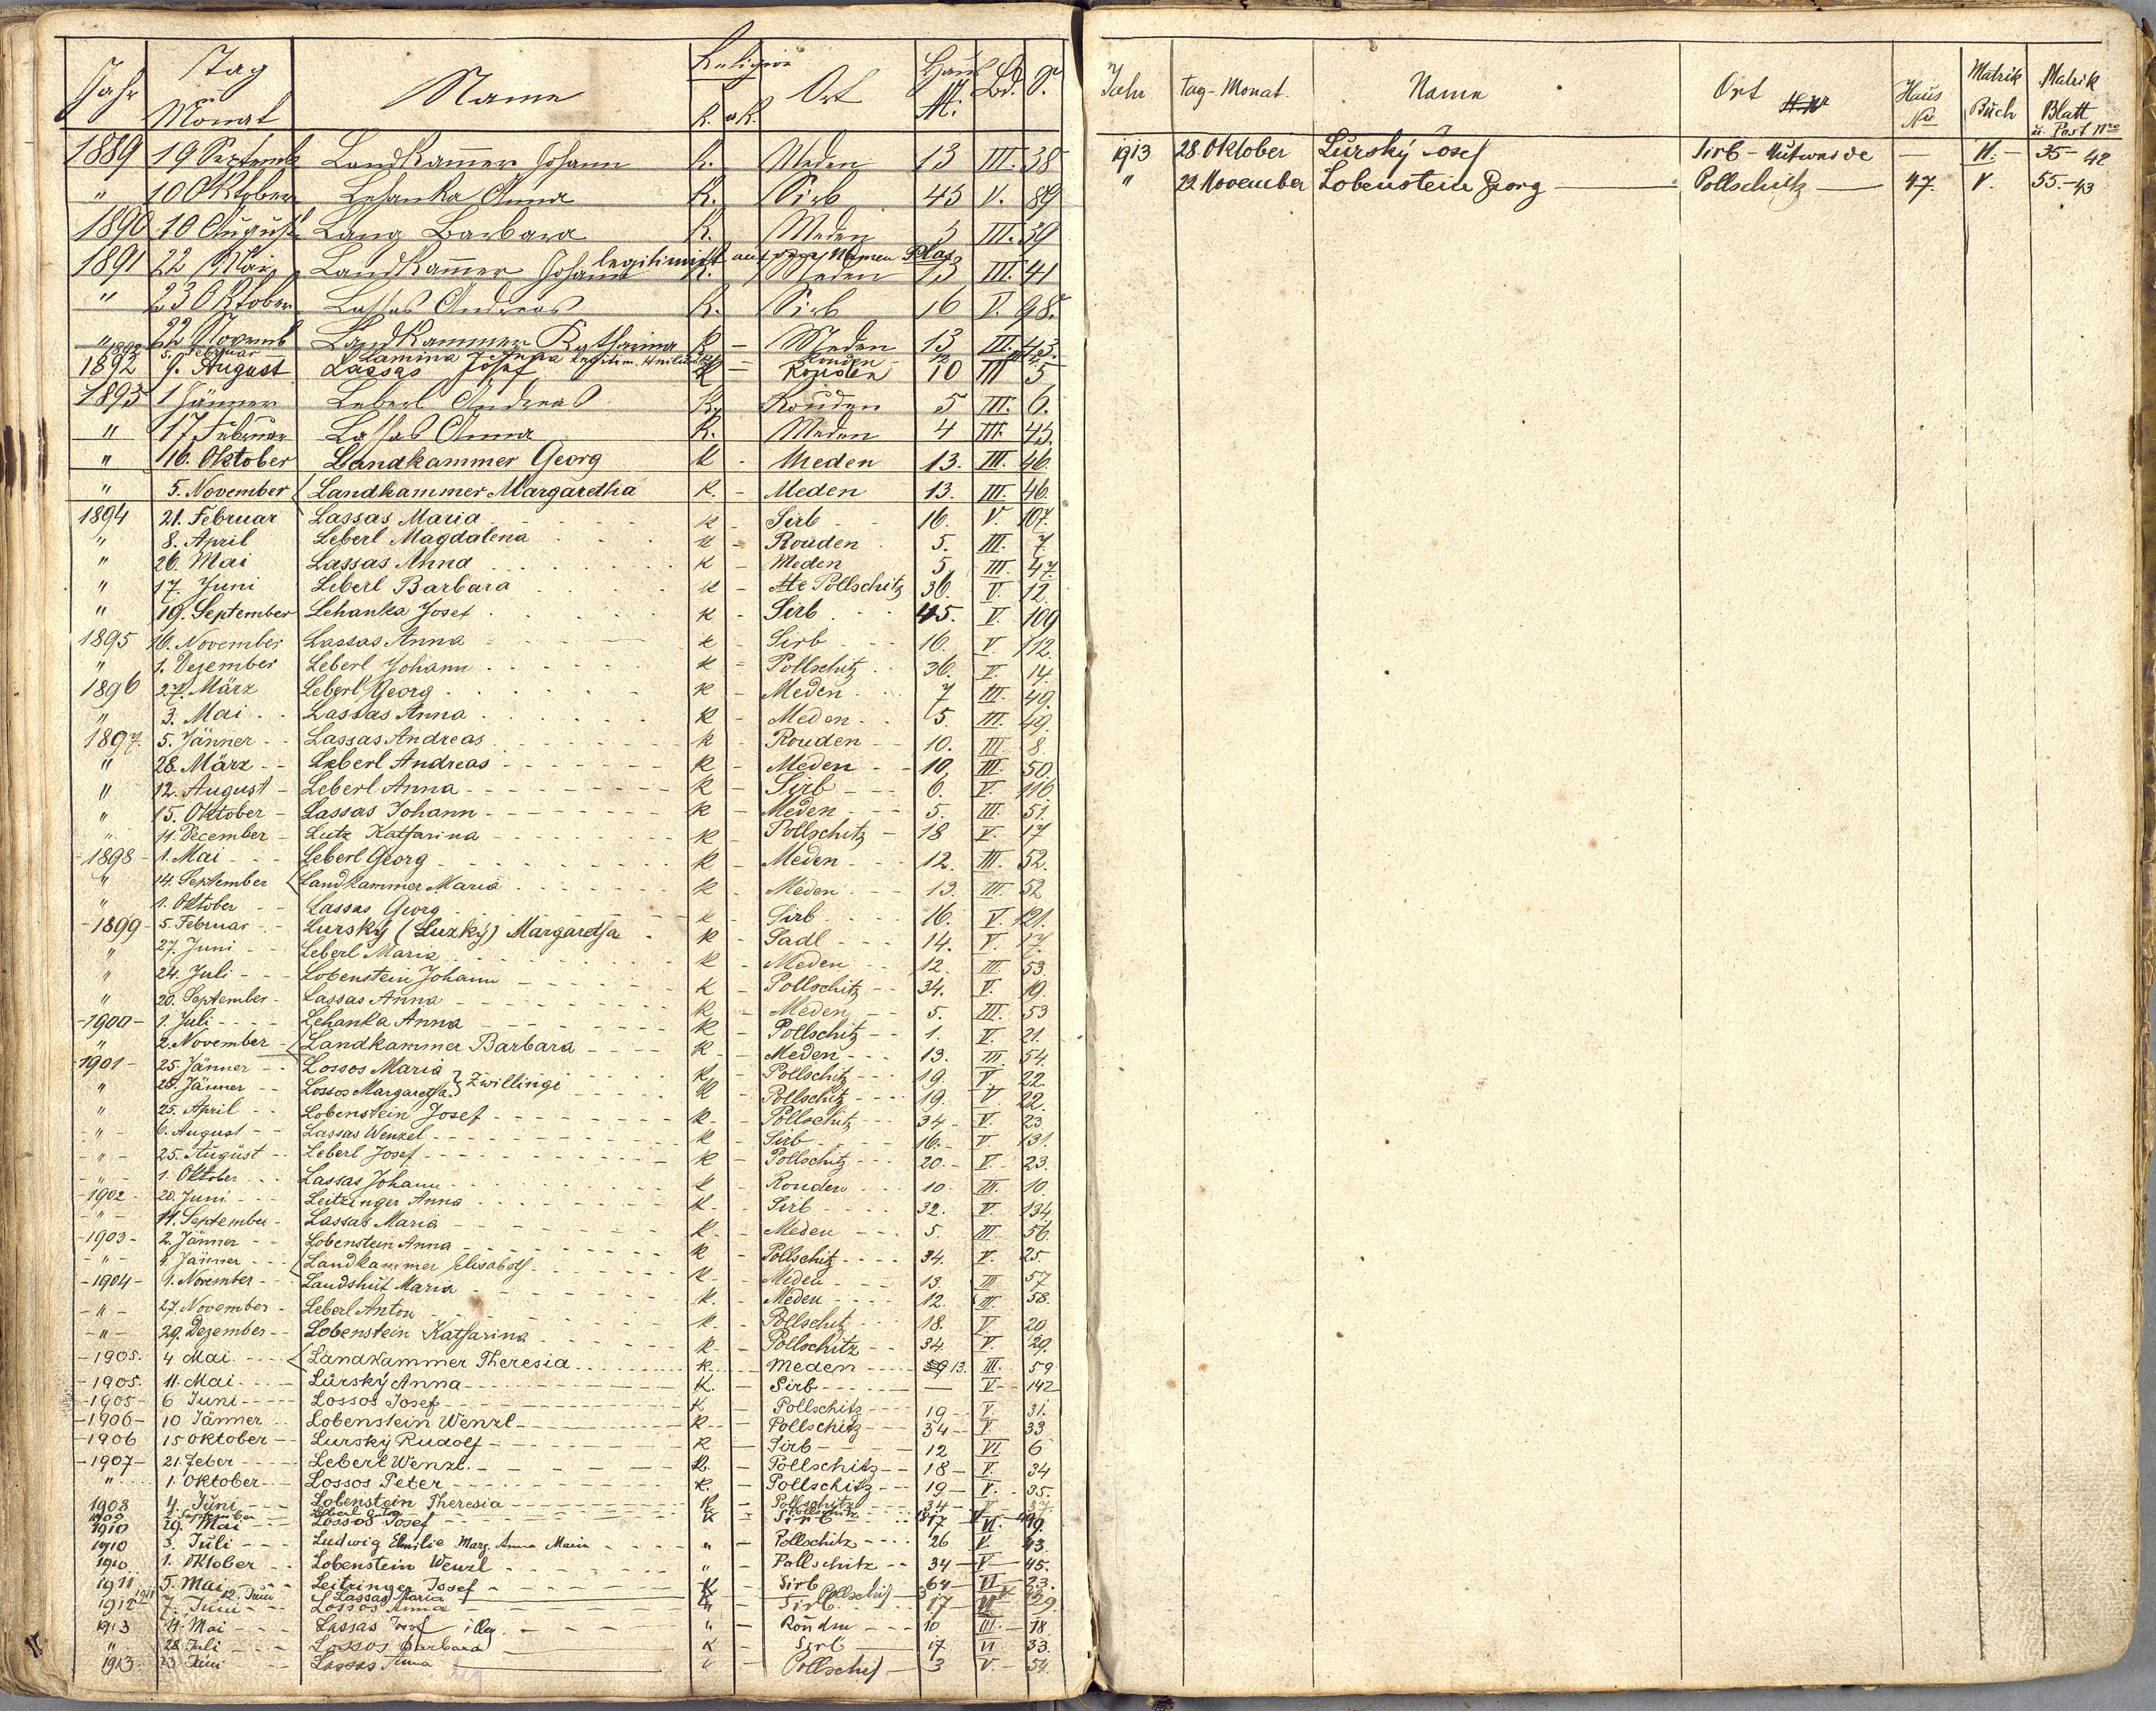 Jahr Tag Monat Name Religion K. ak. Ort Haus N. Bd. S.
1889 19 Septemb Landkam̅er Johann K. Meden 13 III. 38
" 10 Oktober Lehanka Anna K. Sirb 45 V. 89
1890 10 August Lang Barbara K. Meden 3 III. 39
legitimirt auf den Namen Plas
1891 22 Mai Landkam̅er Johann K. Meden 13 III. 41
" 23 Oktober Lassas Andreas K. Sirb 16 V. 98.
" 22 Novemb Landkammer Katharina K - Meden 13 III. 43.
5. Februar Lamina Josefa Legitim. Rouden 12
1892 9. August Lassas Josef K - Rouden 10 III 5
1893 1 Jänner Leberl Andreas K. Rouden 5 III. 6.
" 17 Februar Lassas Anna K. Meden 4 III. 45.
" 16. Oktober Landkammer Georg K - Meden 13. III. 46.
" 5. November Landkammer Margaretha K. - Meden 13. III. 46.
1894 21. Februar Lassas Maria K - Sirb 16. V. 107.
" 8. April Leberl Magdalena K - Rouden 5. III. 7.
" 26. Mai Lassas Anna K - Meden 5. III. 47.
" 17. Juni Leberl Barbara K - Pollschitz 36. V. 12.
" 19. September Lehanka Josef K - Sirb 45. V. 109
1895 16. November Lassas Anna K - Sirb 16. V. 112.
" 1. Dezember Leberl Johann K - Pollschitz 36. V. 14.
1896 27. März Leberl Georg K - Meden 7 III. 49.
" 3. Mai Lassas Anna K - Meden 5. III. 49.
1897. 5. Jänner Lassas Andreas K - Rouden 10. III 8.
" 28. März Leberl Andreas K - Meden 10. III. 50.
" 12. August Leberl Anna K - Sirb 6. V. 116
" 15. Oktober Lassas Johann K - Meden 5. III. 51.
" 11. December Lutz Katharina K - Pollschitz 18 V. 17
1898 1. Mai Leberl Georg K - Meden 12. III. 52.
" 14. September Landkammer Maria K - Meden 13. III. 52
" 1. Oktober Lassas Georg K - Sirb 16. V. 121.
1899 5. Februar Lursky (Luzky) Margaretha K - Sadl 14. V. 17.
" 27. Juni Leberl Maria K - Meden 12. III. 53.
" 24. Juli Lobenstein Johann K - Pollschitz 34. V. 19.
" 20. September Lassas Anna K - Meden 5. III. 53
1900 1. Juli Lehanka Anna K - Pollschitz 1. V. 21.
" 2. November Landkammer Barbara K - Meden 13. III. 54.
1901 25. Jänner Lossos Maria } Zwillinge K - Pollschitz 19. V. 22.
" 25. Jänner Lossos Margaretha K - Pollschitz 19. V. 22.
" 25. April Lobenstein Josef K - Pollschitz 34 V. 23
" 6. August Lassas Wenzel K - Sirb 16. V. 131.
" 25. August Leberl Josef K - Pollschitz 20. V. 23.
" 1. Oktober Lassas Johann K - Rouden 10. III. 10.
1902 20. Juni Leitzinger Anna K - Sirb 32. V. 134
" 11. September Lassas Maria K - Meden 5. III. 56.
1903 2. Jänner Lobenstein Anna K - Pollschitz 34. V. 25.
" 4. Jänner Landkammer Elisabeth K - Meden 13. III. 57
1904 1. November Landshut Maria K. - Meden 12. III. 58.
" 27. November Leberl Anton K - Pollschitz 18. V. 20
" 29. Dezember Lobenstein Katharina K - Pollschitz 34 V. 29.
1905. 4 Mai Landkammer Theresia K. - Meden 13. III. 59
1905. 11. Mai Lursky Anna K. - Sirb — V 142
1905 6 Juni Lossos Josef K - Pollschitz 19 V. 31.
1906 10 Jänner Lobenstein Wenzl K - Pollschitz 34 V 33
1906 15 Oktober Lursky Rudolf K - Sirb 12 VI 6
1907 21. Feber Leberl Wenzl. K. - Pollschitz 18 V. 34
" 1. Oktober Lossos Peter K. - Pollschitz 19 V. 35.
1908 4. Juni Lobenstein Theresia K - Pollschitz 34 V 37.
1909 September Leberl Anton Pollschitz
1910 29. Mai Lossos Josef K - Sirb 17 VI. 19.
1910 3. Juli Ludwig Emilie Marg. Anna Maria " - Pollschitz 26 V. 43.
1910 1. Oktober Lobenstein Wenzl " - Pollschitz 34 V 45.
1911 5. Mai Leitzinger Josef K - Sirb 64 VI 23.
1911 12. Juni Lassas Maria K Pollschitz 3 V
1912 7. Juni Lossos Anna " - Sirb 17 VI 29.
1913 11. Mai Lassas Josef " - Roudn 10 III. 18.
" 28. Juli Lossos Barbara K - Sirb 17. VI 33.
1913. 23 Juni Lassas Anna " - Pollschitz 3 V 54.
Jahr Tag-Monat. Name Ort Haus No Matrik Buch Matrik Blatt u. Post Nro
1913 28. Oktober Lursky Josef Sirb - Hutweide — VI. 35 - 42
" 22 November Lobenstein Georg — Pollschitz — 47. V. 55. - 43